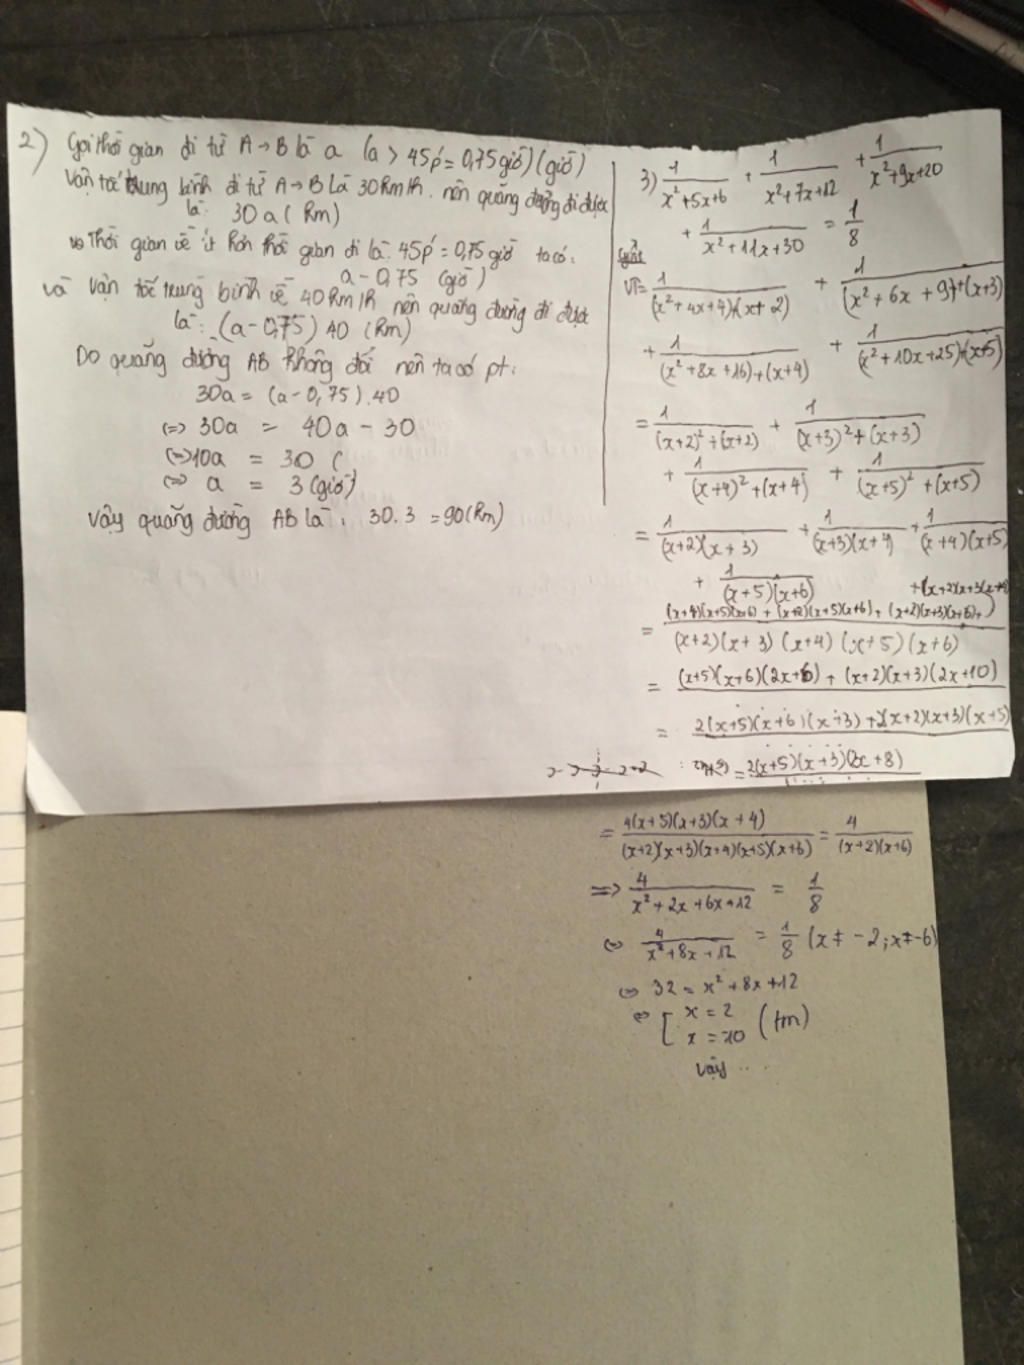 2) Gọi thời gian đi từ A→B là a (a > 45p' = 0,75 giờ) (giờ)
Vận tốc trung bình đi từ A→B là 30km/h. nên quãng đường đi được
là: 30a (km)
Thời gian về ít hơn thời gian đi là 45p' = 0,75 giờ ta có:
a - 0,75 (giờ)
và vận tốc trung bình về 40km/h nên quãng đường đi được
là: (a-0,75) 40 (km)
Do quãng đường AB không đổi nên ta có pt:
30a = (a-0,75).40
(=) 30a = 40a - 30
(=) 10a = 30 (
(=) a = 3 (giờ)
Vậy quãng đường AB là: 30.3 = 90 (km)
3) 1/(x²+5x+6) + 1/(x²+7x+12) + 1/(x²+9x+20)
+ 1/(x²+11x+30) = 1/8
Giải
VT= 1/((x²+4x+4)+(x+2)) + 1/((x²+6x+9)+(x+3))
+ 1/((x²+8x+16)+(x+4)) + 1/((x²+10x+25)+(x+5))
= 1/((x+2)²+(x+2)) + 1/((x+3)²+(x+3))
+ 1/((x+4)²+(x+4)) + 1/((x+5)²+(x+5))
= 1/((x+2)(x+3)) + 1/((x+3)(x+4)) + 1/((x+4)(x+5))
+ 1/((x+5)(x+6))
+(x+2)(x+3)(x+4)
= ((x+4)(x+5)(x+6) + (x+2)(x+5)(x+6) + (x+2)(x+3)(x+6)+)/((x+2)(x+3)(x+4)(x+5)(x+6))
= (x+5)(x+6)(2x+6) + (x+2)(x+3)(2x+10)
= 2(x+5)(x+6)(x+3) + 2(x+2)(x+3)(x+5)
= 2(x+5)(x+3)(2x+8)
= 4(x+5)(x+3)(x+4)/((x+2)(x+3)(x+4)(x+5)(x+6)) = 4/((x+2)(x+6))
=> 4/(x²+2x+6x+12) = 1/8
(=) 4/(x²+8x+12) = 1/8 (x ≠ -2; x ≠ -6)
(=) 32 = x²+8x+12
(=) [ x = 2
x = -10 (tm)
Vậy ...